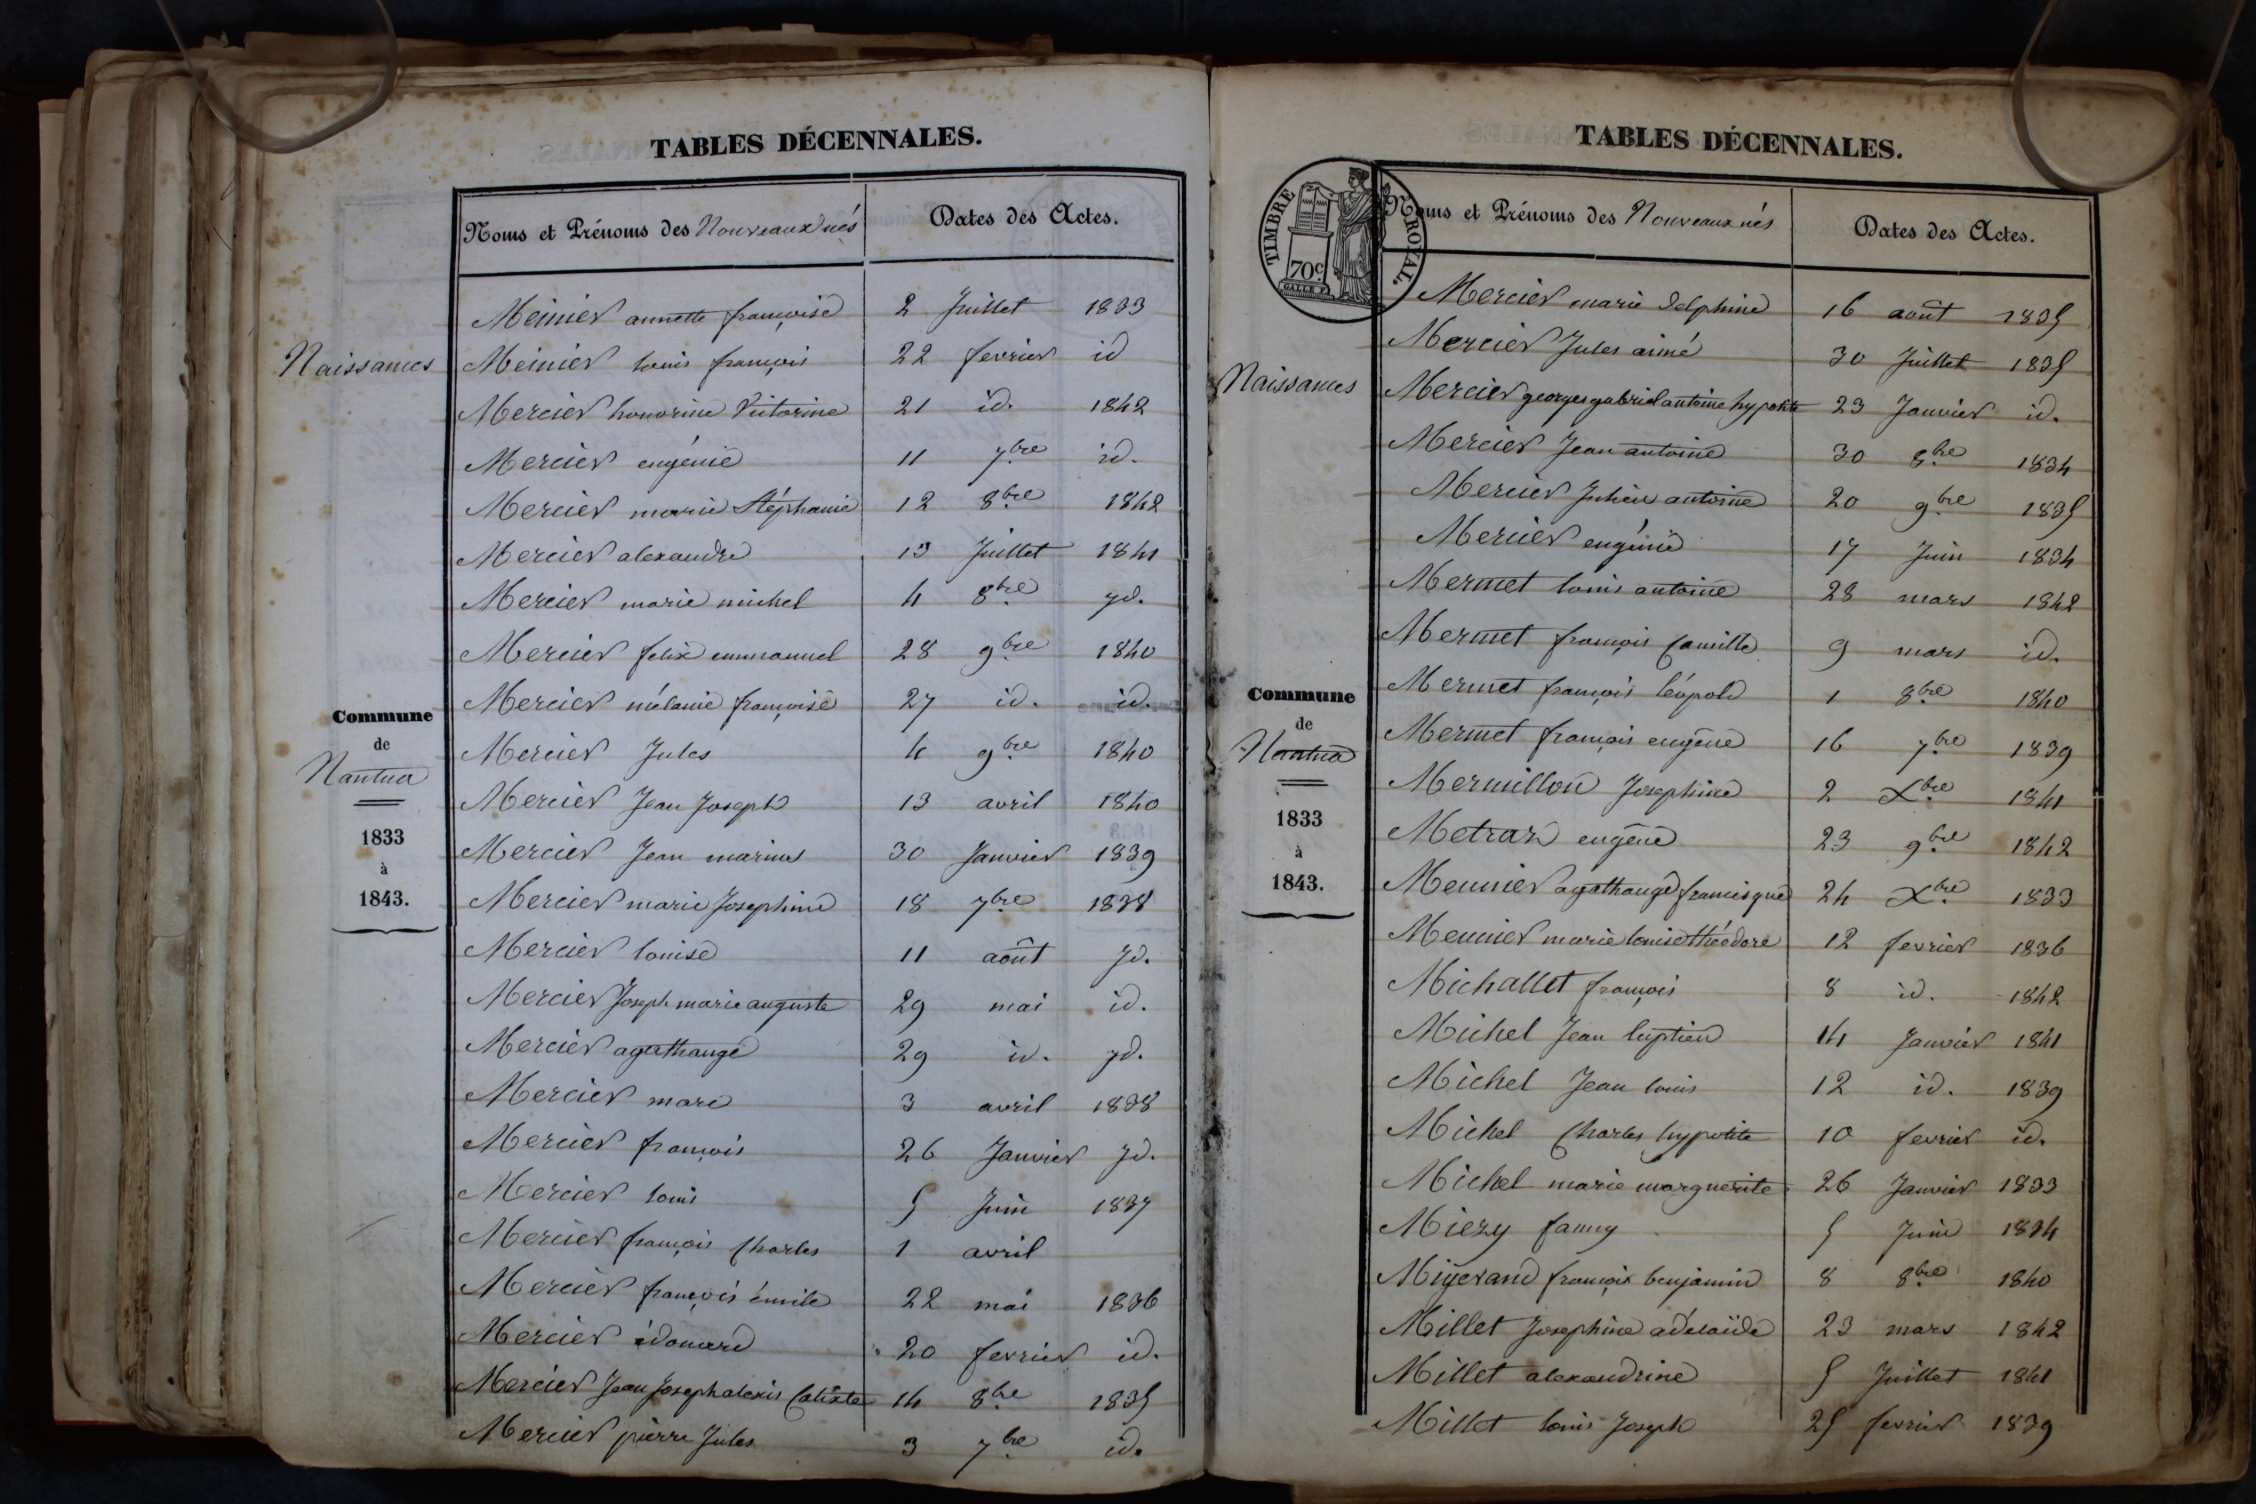 TABLES DÉCENNALES.
Noms et Prénoms des Nouveaux nés Dates des Actes.
Naissances
Commune
de
Nantua
1833
à
1843.
Meinier annette françoise 2 Juillet 1833
Meinier louis françois 22 fevrier id
Mercier honorine Victorine 21 id. 1842
Mercier eugénie 11 7bre id.
Mercier marie Stéphanie 12 8bre 1842
Mercier alexandre 13 Juillet 1841
Mercier marie michel 4 8bre yd.
Mercier felix emmanuel 28 9bre 1840
Mercier mélanie françoise 27 id. id.
Mercier Jules 4 9bre 1840
Mercier Jean Joseph 13 avril 1840
Mercier Jean marius 30 Janvier 1839
Mercier marie Josephine 18 7bre 1838
Mercier louise 11 août yd.
Mercier Joseph marie auguste 29 mai id.
Mercier agathange 29 id. yd.
Mercier marc 3 avril 1838
Mercier françois 26 Janvier yd.
Mercier louis 5 Juin 1837
Mercier françois Charles 1 avril
Mercier françois émile 22 mai 1836
Mercier édouard 20 fevrier id.
Mercier Jean Joseph alexis Calixte 14 8bre 1835
Mercier pierre Jules 3 7bre id.
TABLES DÉCENNALES.
TIMBRE ROYAL.
70c
Noms et Prénoms des Nouveaux nés Dates des Actes.
Naissances
Commune
de
Nantua
1833
à
1843.
Mercier marie Delphine 16 août 1835
Mercier Jules aimé 30 Juillet 1835
Mercier georges gabriel antoine hypolite 23 Janvier id.
Mercier Jean antoine 30 8bre 1834
Mercier Julien antoine 20 9bre 1835
Mercier eugénie 17 Juin 1834
Mermet louis antoine 28 mars 1842
Mermet françois Camille 9 mars id.
Mermet françois léopold 1 8bre 1840
Mermet françois eugène 16 7bre 1839
Mermillon Josephine 2 Xbre 1841
Metraz eugène 23 9bre 1842
Meunier agathange francisque 24 Xbre 1833
Meunier marie louise théodore 12 fevrier 1836
Michallet françois 8 id. 1842
Michel Jean 14 Janvier 1841
Michel Jean louis 12 id. 1839
Michel Charles hypolite 10 fevrier id.
Michel marie marguerite 26 Janvier 1833
Miezy fanny 5 Juin 1834
Migerand françois benjamin 8 8bre 1840
Millet Josephine adélaïde 23 mars 1842
Millet alexandrine 5 Juillet 1841
Millet louis Joseph 25 fevrier 1839